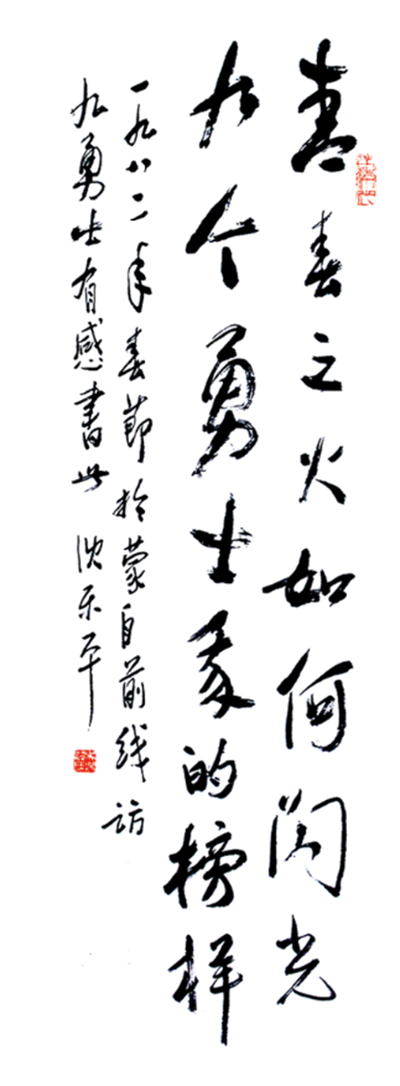 青春之火如何闪光
九个勇士我的榜样
一九八二年春节于蒙自前线访
九勇士有感书此 沈乐平